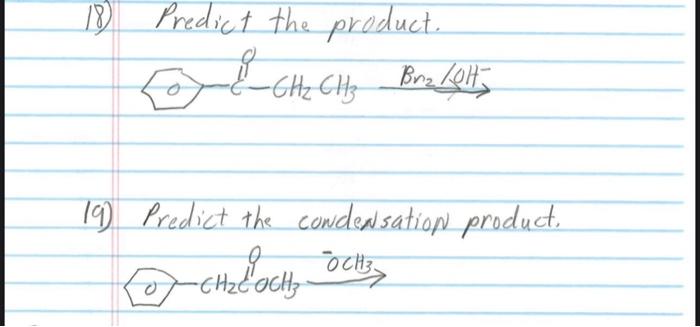 18) Predict the product.
O
-C-CH2 CH3 Br2/OH-
19) Predict the condensation product.
O -OCH3
-CH2COCH3